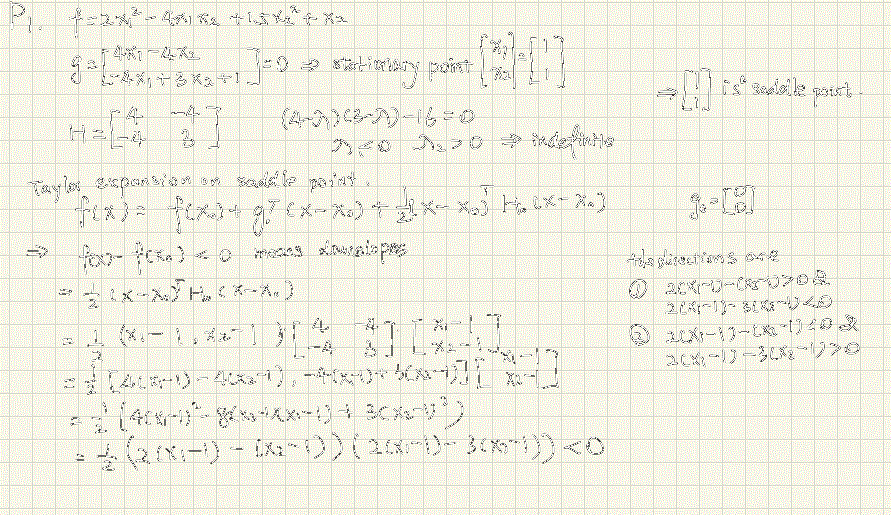 P1. f = 2x1² - 4x1x2 + 1.5x2² + x2
g = [4x1 - 4x2
-4x1 + 3x2 + 1] = 0 ⇒ stationary point [x1
x2] = [1
1]
⇒ [1
1] is saddle point.
H = [4 -4
-4 3] (4-λ)(3-λ) - 16 = 0
λ1<0 λ2>0 ⇒ indefinite
Taylor expansion on saddle point.
f(x) = f(x0) + g0ᵀ(x-x0) + 1/2(x-x0)ᵀ H0 (x-x0) g0 = [0
0]
⇒ f(x) - f(x0) < 0 means downslopes
= 1/2 (x-x0)ᵀ H0 (x-x0)
= 1/2 (x1-1, x2-1) [4 -4
-4 3] [x1-1
x2-1]
= 1/2 [4(x1-1) - 4(x2-1), -4(x1-1) + 3(x2-1)] [x1-1
x2-1]
= 1/2 (4(x1-1)² - 8(x1-1)(x2-1) + 3(x2-1)²)
= 1/2 (2(x1-1) - (x2-1)) (2(x1-1) - 3(x2-1)) < 0
the directions are
① 2(x1-1) - (x2-1) > 0 &
2(x1-1) - 3(x2-1) < 0
② 2(x1-1) - (x2-1) < 0 &
2(x1-1) - 3(x2-1) > 0